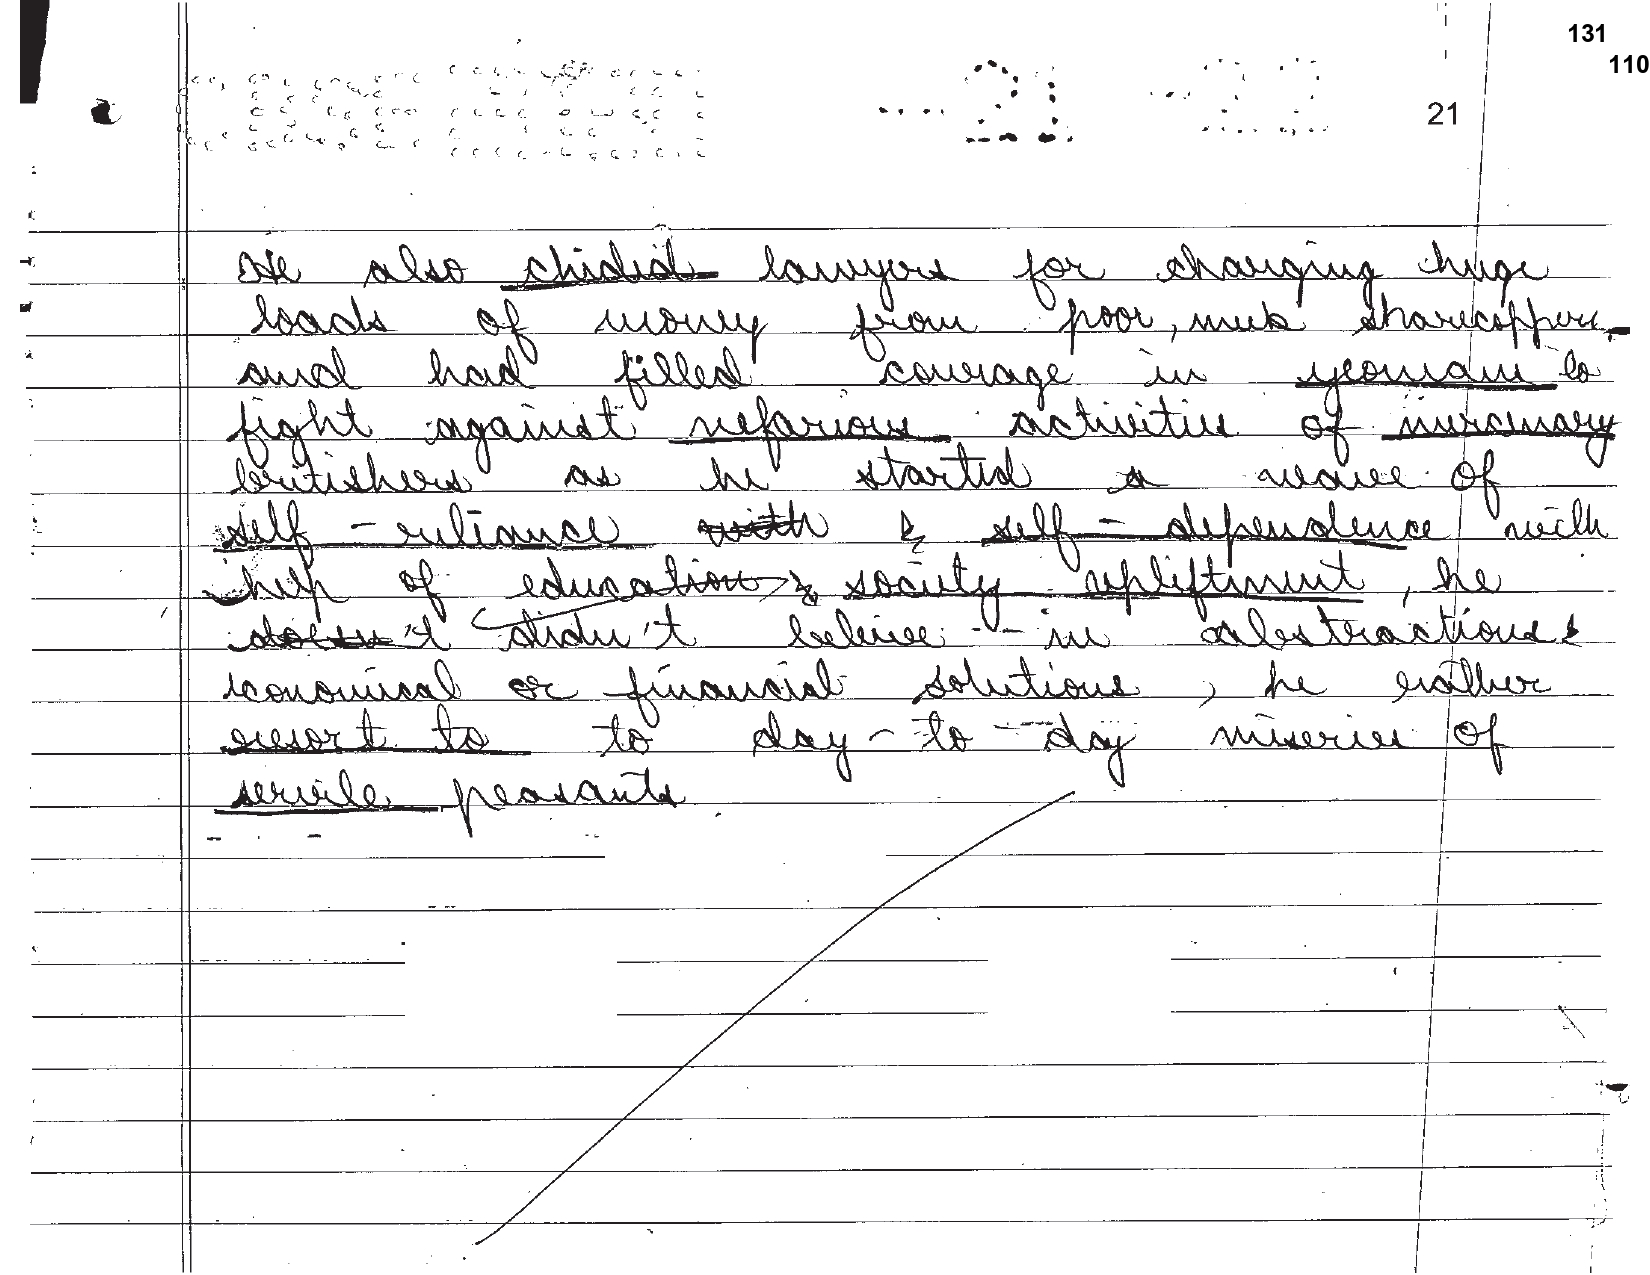 131
110
21
21
He also chided lawyers for charging huge
loads of money from poor, meek sharecroppers
and had filled courage in yeoman to
fight against nefarious activities of mercenary
britishers as he started a wave of
self - reliance with & self - dependence with
help of education & society upliftment, he
doesn't didn't believe in abstractions &
economical or financial solutions, he rather
resort to to day - to - day miseries of
servile peasants